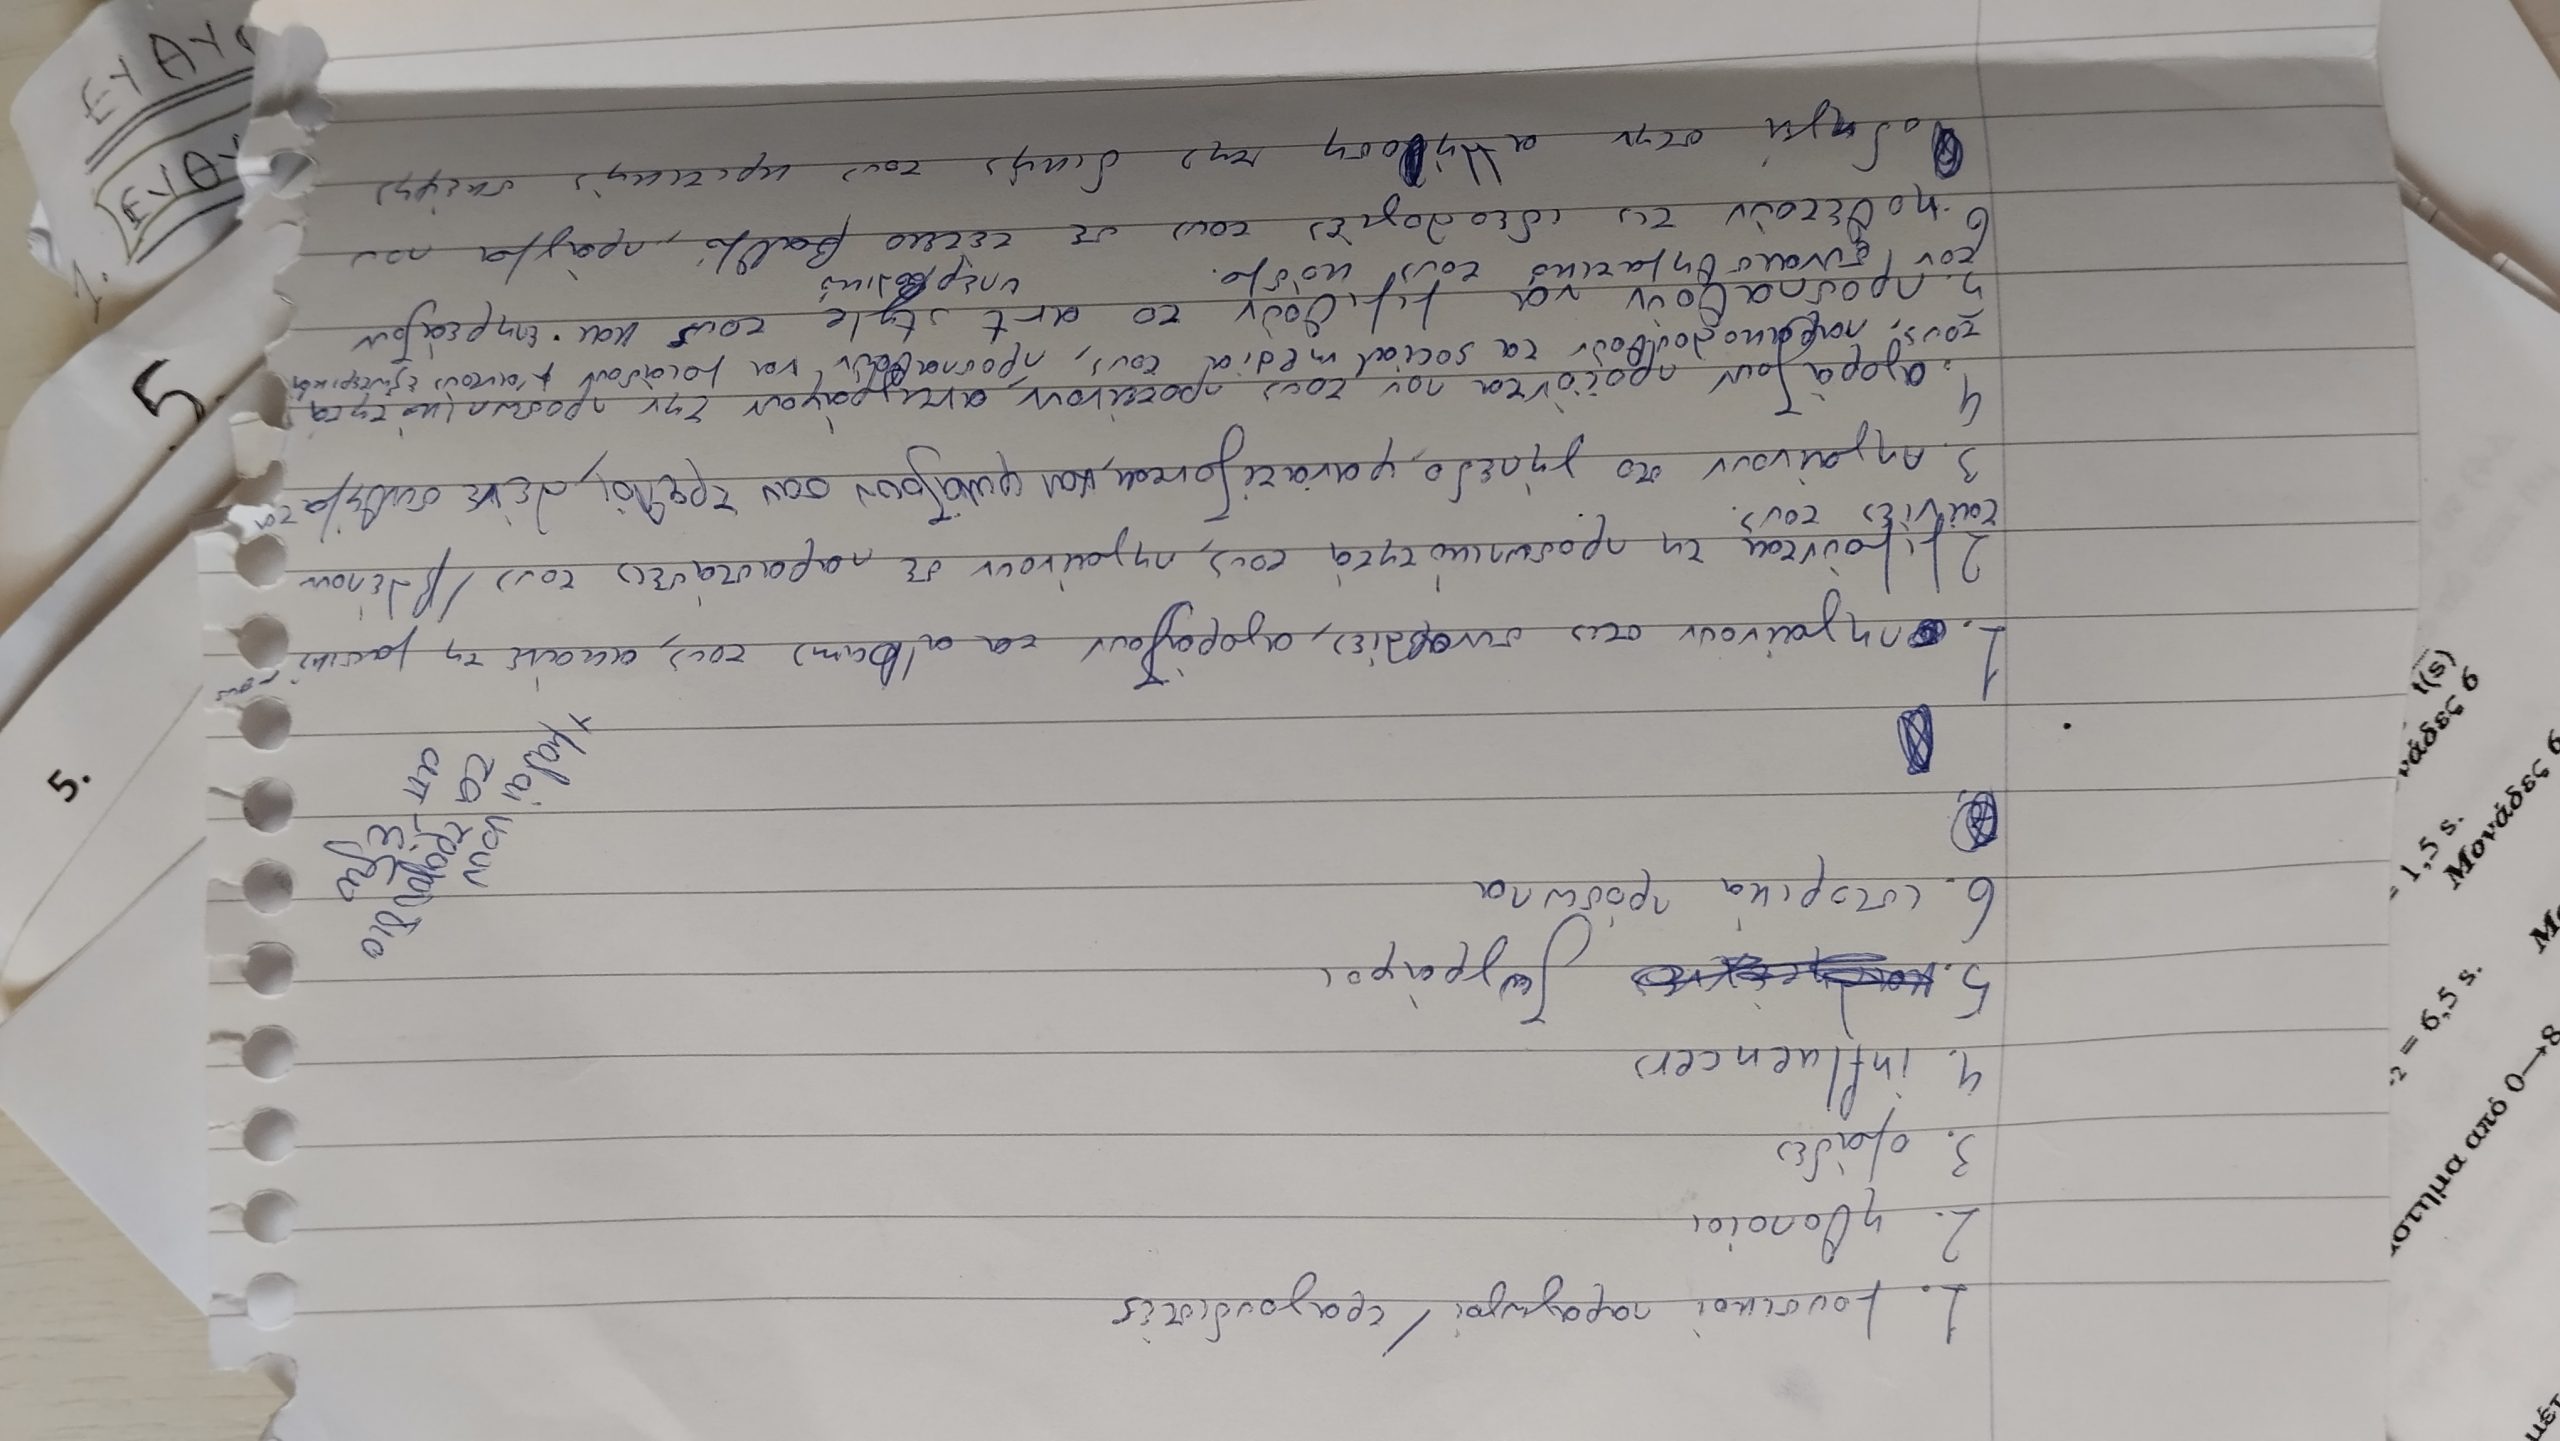 1. μουσικοί παραγωγοί / τραγουδιστές
2. ηθοποιοί
3. ομάδες
4. influencers
5. ζωγράφοι
6. ιστορικά πρόσωπα
1. πηγαίνουν στις συναυλίες, αγοράζουν τα albums τους, ακούνε τη μουσική τους
2. μιμούνται τη προσωπικότητά τους, πηγαίνουν σε παραστάσεις τους / βλέπουν
ταινίες τους.
3. πηγαίνουν στο γήπεδο, φανατίζονται, και φωνάζουν σαν τρελοί, λένε συνθήματα
4. αγοράζουν προϊόντα που τους προτείνουν, αντιγράφουν την προσωπικότητά
τους, παρακολουθούν τα social media τους, προσπαθούν να μοιάσουν σ'αυτούς εξωτερικά
5. προσπαθούν να μιμηθούν το art style τους και επηρεάζουν
τον συναισθηματικό τους κόσμο.
6. υιοθετούν τις ιδεολογίες τους σε τέτοιο υπερβολικό βαθμό, πράγμα που
οδηγεί στην αλλοίωση της δικής τους κριτικής σκέψης
+ μαθαίνουν
τα τραγούδια
απ' έξω
ΕΥΑΥ
ΕΥΑΥ
1.
5.
5.
t(s)
νάδες 6
= 1,5 s.
Μονάδες 6
= 6,5 s.
στημα από 0→8